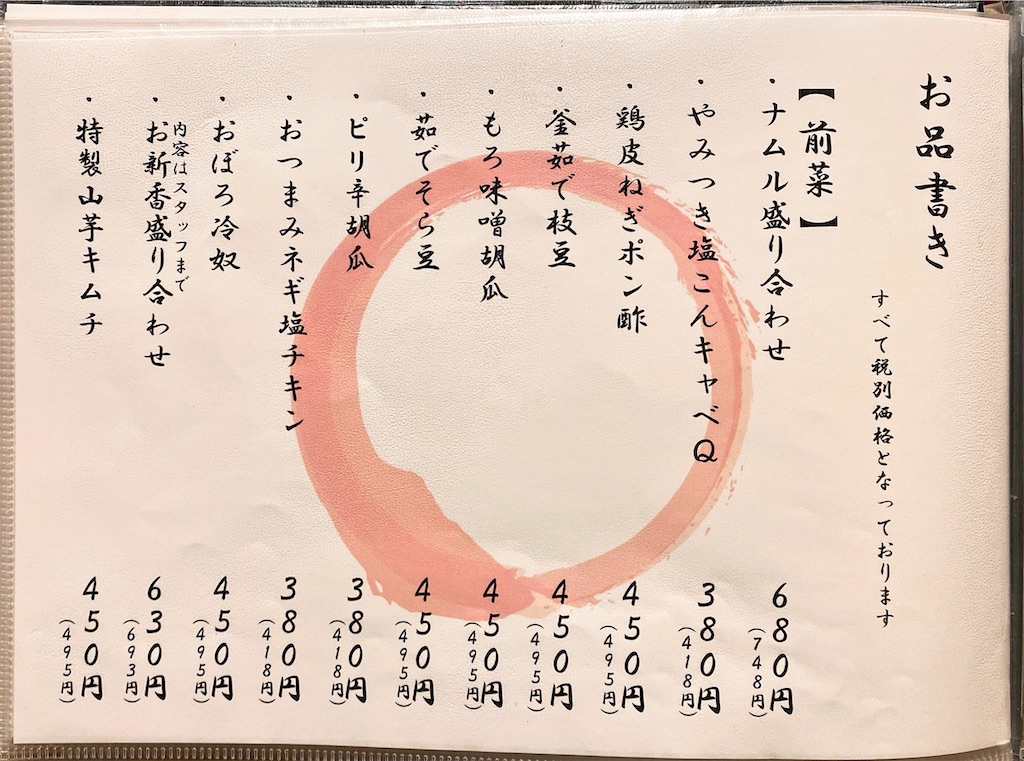 お品書き
すべて税別価格となっております
【前菜】
・ナムル盛り合わせ 680円
(748円)
・やみつき塩こんキャベQ 380円
(418円)
・鶏皮ねぎポン酢 450円
(495円)
・釜茹で枝豆 450円
(495円)
・もろ味噌胡瓜 450円
(495円)
・茹でそら豆 450円
(495円)
・ピリ辛胡瓜 380円
(418円)
・おつまみネギ塩チキン 380円
(418円)
・おぼろ冷奴 450円
(495円)
内容はスタッフまで
・お新香盛り合わせ 630円
(693円)
・特製山芋キムチ 450円
(495円)